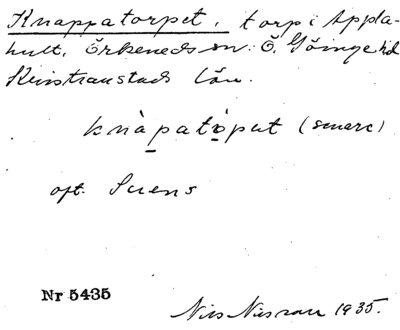 Knappatorpet, torp i Appla-
hult, Örkeneds sn. Ö. Göinge hd
Kristianstads län.
knàpatòput (senare)
oft. Svens
Nr 5435
Nils Nilsson 1935.